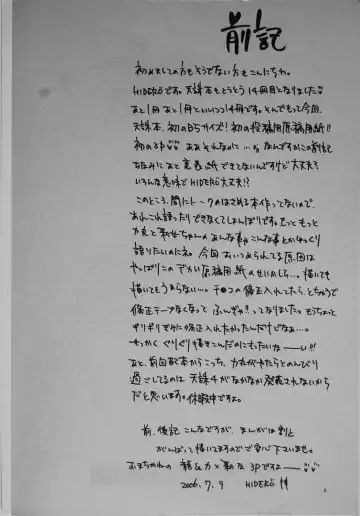 前記
初めましての方もそうでない方もこんにちわ。
HIDERÖです。天誅本もとうとう14冊目となりました
あと1冊あと1冊といいつつ14冊です。そんでもって今回、
天誅本、初のB5サイズ!初の投稿用原稿用紙!!
初の3P あぁそれなのに…。なんですかこの前記
ちなみにあと裏表紙できてないんですけど大丈夫?
いろんな意味でHIDERÖ大丈夫!?
このところ、間にトークのはさめる本作ってないんで
あれこれ語ったりできなくてしょんぼりです。もっともっと
力丸と彩女ちゃんのあんな事やこんな事とかゆっくり
語りたいのにネ。今回おいつめられてる原因は
やっぱりこのデカい原稿用紙のせいかしら…。描いても
描いてもうまらない…。
修正テープなくなって ふんぎゃ!ってなりました。もうちょっと
ギリギリぎみに修正入れたかったんだけどなぁ…。
せっかくぐりぐり描きこんだのにもったいないーー!!
あと、前回の本からこっち、力丸がやたらとのんびり
過ごしてるのは天誅4がなかなか発売されないから
だと思います。休暇中ですよ。
前、後記こんなですが、まんがは割と
がんばって描いてますのでご安心下さいませ。
おまちかねの龍&力×彩な3Pですよーー
2006.7.9 HIDERÖ 拝
4